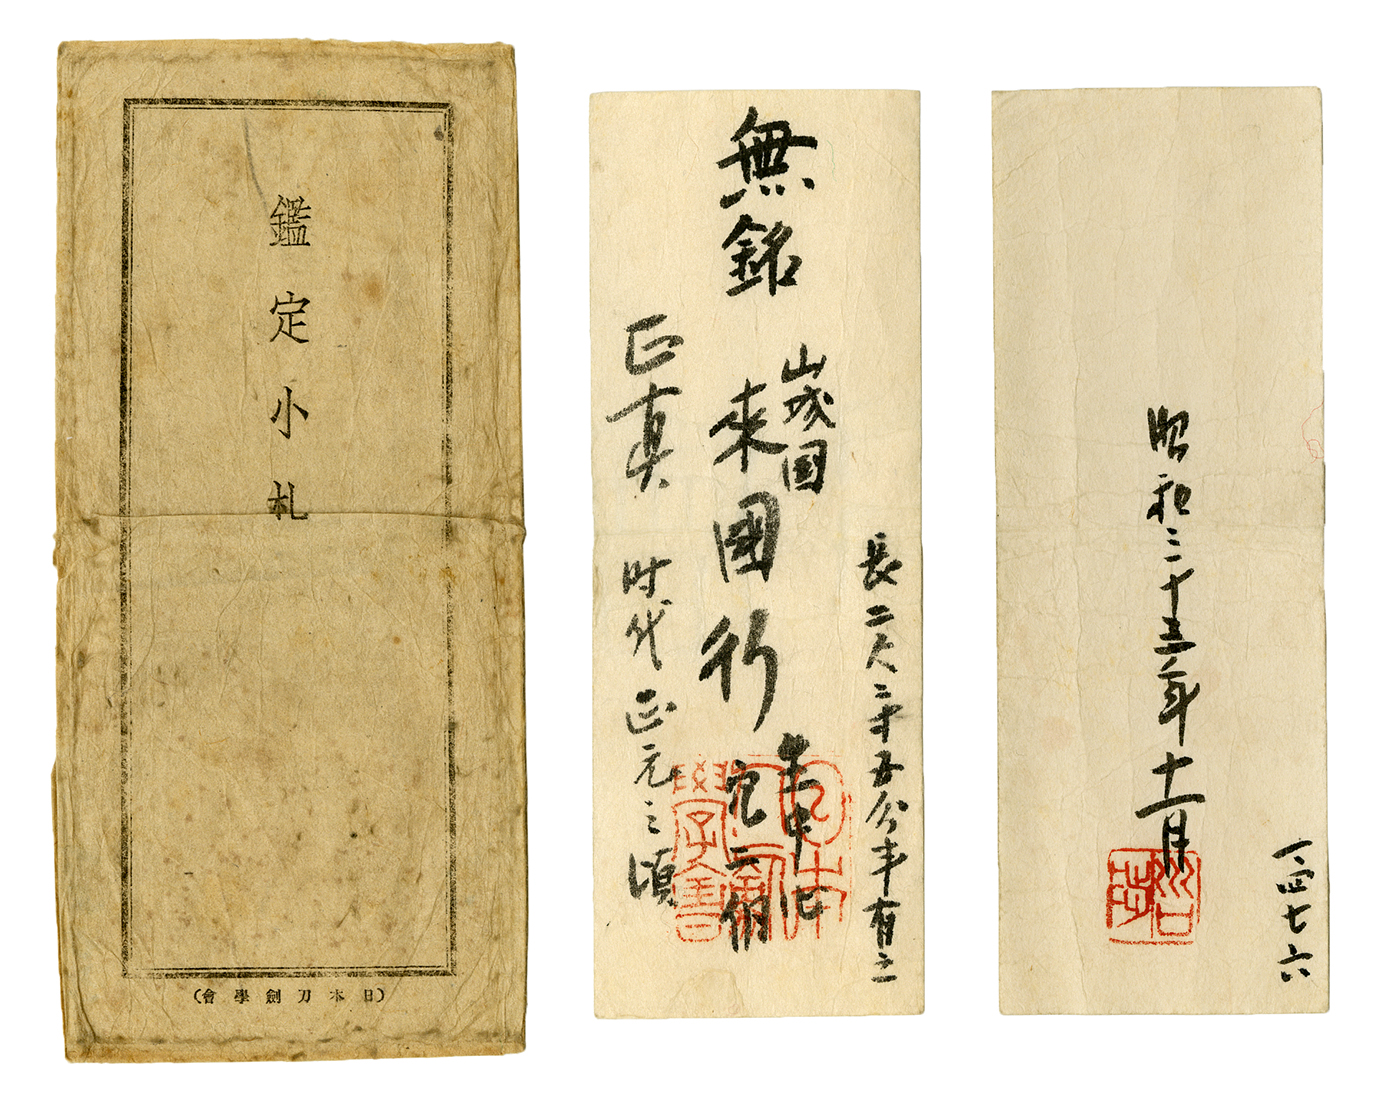 鑑定小札
(日本刀劍學會)
長二尺二寸五分半有之
無銘
山城国
來國行
生中心
穴二個
正真
時代正元之頃
昭和三十五年十一月
一、四七六